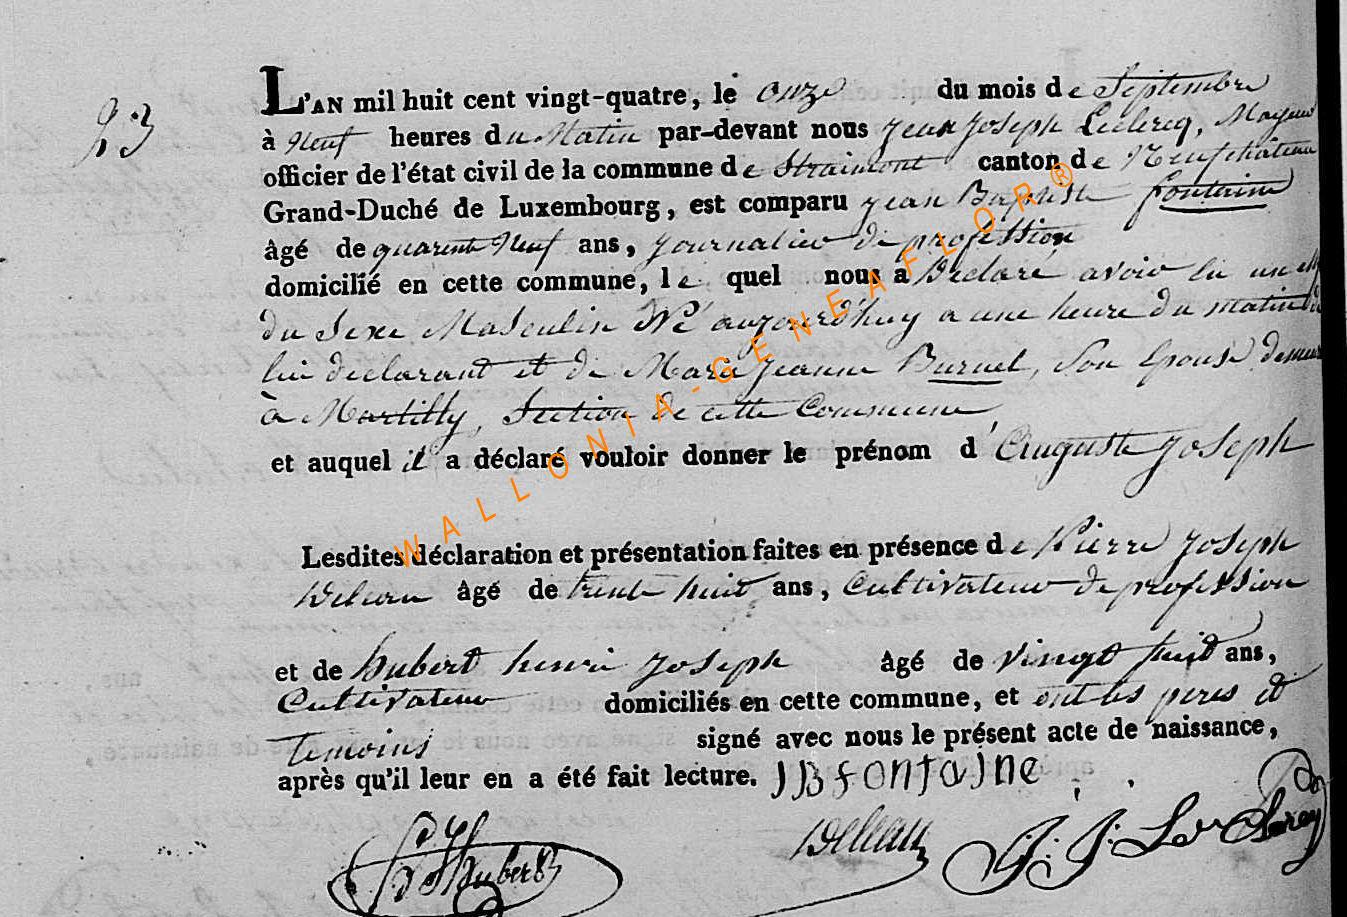 23
L'AN mil huit cent vingt-quatre, le onze du mois de Septembre
à Neuf heures du Matin par-devant nous Jean Joseph Leclercq, Mayeur
officier de l'état civil de la commune de Straimont canton de Neufchateau
Grand-Duché de Luxembourg, est comparu Jean Baptiste fontaine
âgé de quarente Neuf ans, journalier de profession
domicilié en cette commune, le quel nous a Declaré avoir eu un
du Sexe Masculin Né aujourd'huy a une heure du matin de
lui declarant et de Marie jeanne Burnel, Son Epouse
à Martilly, Section de cette Commune
et auquel il a déclaré vouloir donner le prénom d'Auguste Joseph
Lesdites déclaration et présentation faites en présence de Pierre Joseph
âgé de trente huit ans, Cultivateur de profession
et de hubert henri Joseph âgé de vingt huit ans,
Cultivateur domiciliés en cette commune, et ont les peres et
temoins signé avec nous le présent acte de naissance,
après qu'il leur en a été fait lecture. JBfontaine
Hubert J. J. Leclercq
WALLONIA-GENEAFLOR®